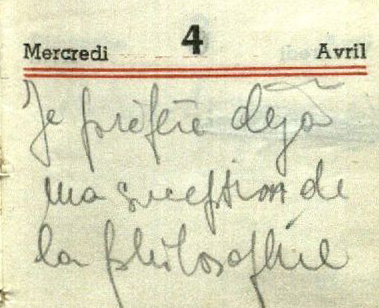 Mercredi 4 Avril
Je préfère déjà
ma de
la philosophie